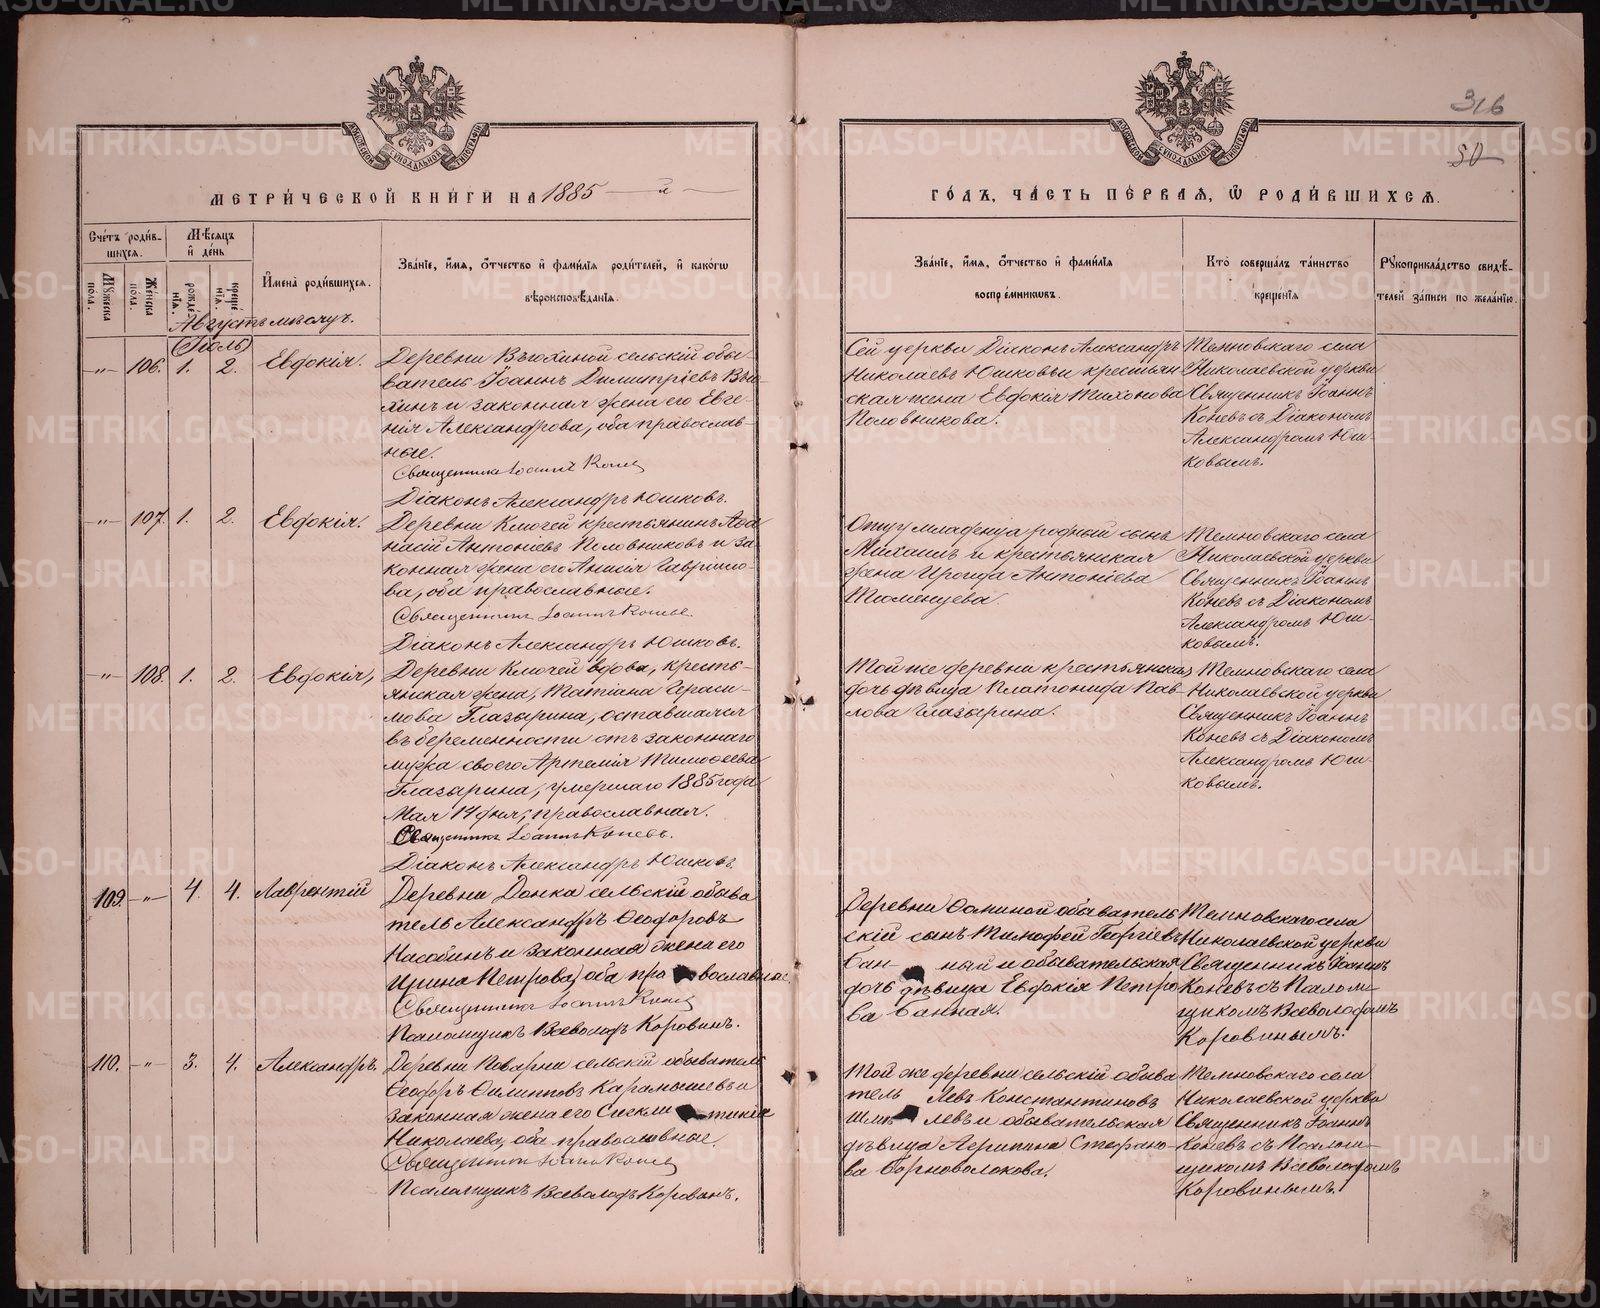 316
50
МЕТРИЧЕСКОЙ КНИГИ НА 1885 й
ГОДЪ, ЧАСТЬ ПЕРВАЯ, Ѡ РОДИВШИХСЯ.
Счетъ родив-
шихся.
Мужеска пола.
Женска пола.
Мѣсяцъ
и день
рожденія.
крещенія
Имена родившихся.
Званіе, имя, отчество и фамилія родителей, и какогѡ
вѣроисповѣданія.
Званіе, имя, отчество и фамилія
воспріемникѡвъ.
Кто совершалъ таинство
крещенія
Рукоприкладство свидѣ-
телей записи по желанію.
Августъ мѣсяцъ.
(Іюль)
-"- 106. 1. 2. Евдокія.
Деревни Вѣюхиной сельскій обы-
ватель Іоаннъ Димитріевъ Вѣю-
хинъ и законная жена его Евге-
нія Александрова, оба православ-
ные.
Священникъ Іоаннъ Коневъ
Діаконъ Александръ Юшковъ.
Сей церкви Діаконъ Александръ
Николаевъ Юшковъ и крестьян
ская жена Евдокія Тихонова
Половникова.
Темновскаго села
Николаевской церкви
Священникъ Іоаннъ
Коневъ съ Діакономъ
Александромъ Юш-
ковымъ.
-"- 107. 1. 2. Евдокія.
Деревни Ключей крестьянинъ Аѳа
насій Антоніевъ Половниковъ и за
конная жена его Анисія Гаврило-
ва, оба православные.
Священникъ Іоаннъ Коневъ.
Діаконъ Александръ Юшковъ.
Отцу младенца родный сынъ
Михаилъ и крестьянская
жена Ироида Антоніева
Тюменцева.
Темновскаго села
Николаевской церкви
Священникъ Іоаннъ
Коневъ съ Діакономъ
Александромъ Юш-
ковымъ.
-"- 108. 1. 2. Евдокія,
Деревни Ключей вдова, кресть-
янская жена, Татіана Гераси-
мова Глазырина, оставшаяся
въ беременности отъ законнаго
мужа своего Артемія Тимоѳеева
Глазырина, умершаго 1885 года
Мая 14 дня, православная.
Священникъ Іоаннъ Коневъ.
Діаконъ Александръ Юшковъ.
Той же деревни крестьянская
дочь дѣвица Платонида Пав-
лова Глазырина.
Темновскаго села
Николаевской церкви
Священникъ Іоаннъ
Коневъ съ Діакономъ
Александромъ Юш-
ковымъ.
109. -"- 4. 4. Лаврентій
Деревни Донка сельскій обыва
тель Александръ Ѳеодоровъ
Насобинъ и законная жена его
Ирина Петрова, оба православные.
Священникъ Іоаннъ Коневъ
Псаломщикъ Всеволодъ Коровинъ.
Деревни Ѳоминой обыватель
скій сынъ Тимофей Георгіевъ
Бан- ный и обывательская
дочь дѣвица Евдокія Петро
ва Банная.
Темновскаго села
Николаевской церкви
Священникъ Іоаннъ
Коневъ съ Псалом-
щикомъ Всеволодомъ
Коровинымъ.
110. -"- 3. 4. Александръ.
Деревни Поварни сельскій обыватель
Ѳеодоръ Филипповъ Карамышевъ и
законная жена его Синкли тикія
Николаева, оба православные.
Священникъ Іоаннъ Коневъ
Псаломщикъ Всеволодъ Коровинъ.
Той же деревни сельскій обыва
тель Левъ Константиновъ
Шмы левъ и обывательская
дѣвица Агрипина Стефано-
ва Борноволокова.
Темновскаго села
Николаевской церкви
Священникъ Іоаннъ
Коневъ съ Псалом-
щикомъ Всеволодомъ
Коровинымъ.
METRIKI.GASO-URAL.RU